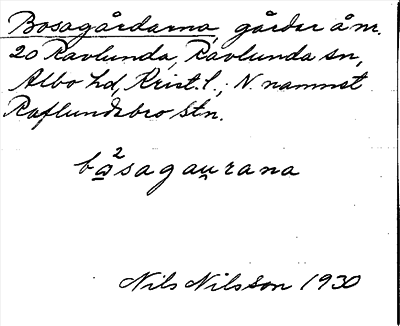 Bosagårdarna, gårdar å nr.
20 Ravlunda, Ravlunda sn,
Albo hd, Krist. l.; N. namnst
Raflundabro stn.
bo̲²sagau̯rana
Nils Nilsson 1930